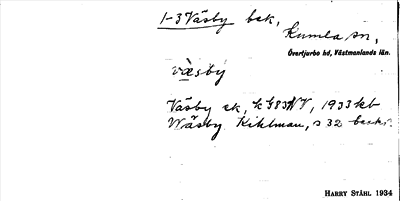 1-3 Väsby bek,
Kumla sn,
Övertjurbo hd, Västmanlands län.
væ̀sby
Väsby ek, k G83NV, 1933 kb
Wäsby Kihlman, s 32 beskr.
HARRY STÅHL 1934